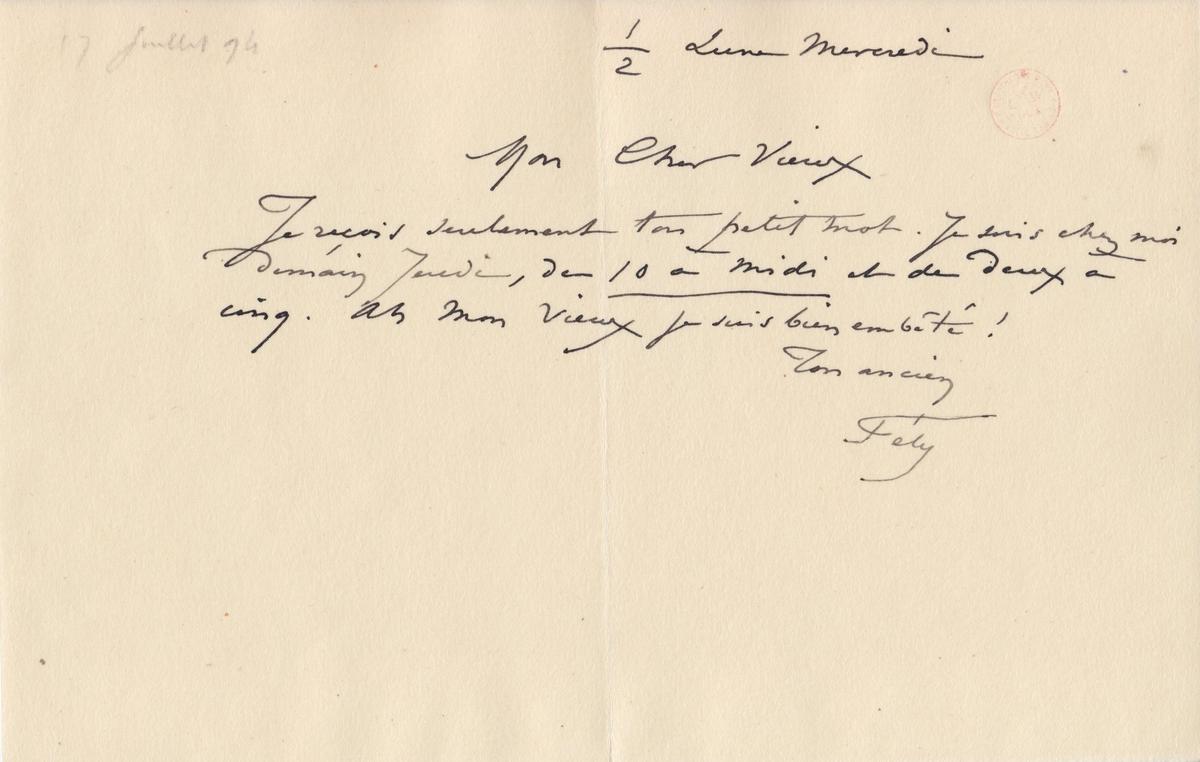 17 Juillet 94
1/2 Lune Mercredi
Mon Cher Vieux
Je reçois seulement ton petit mot. Je suis chez moi
demain Jeudi, de 10 à midi et de deux à
cinq. Ah mon vieux je suis bien embêté !
Ton ancien
Fély